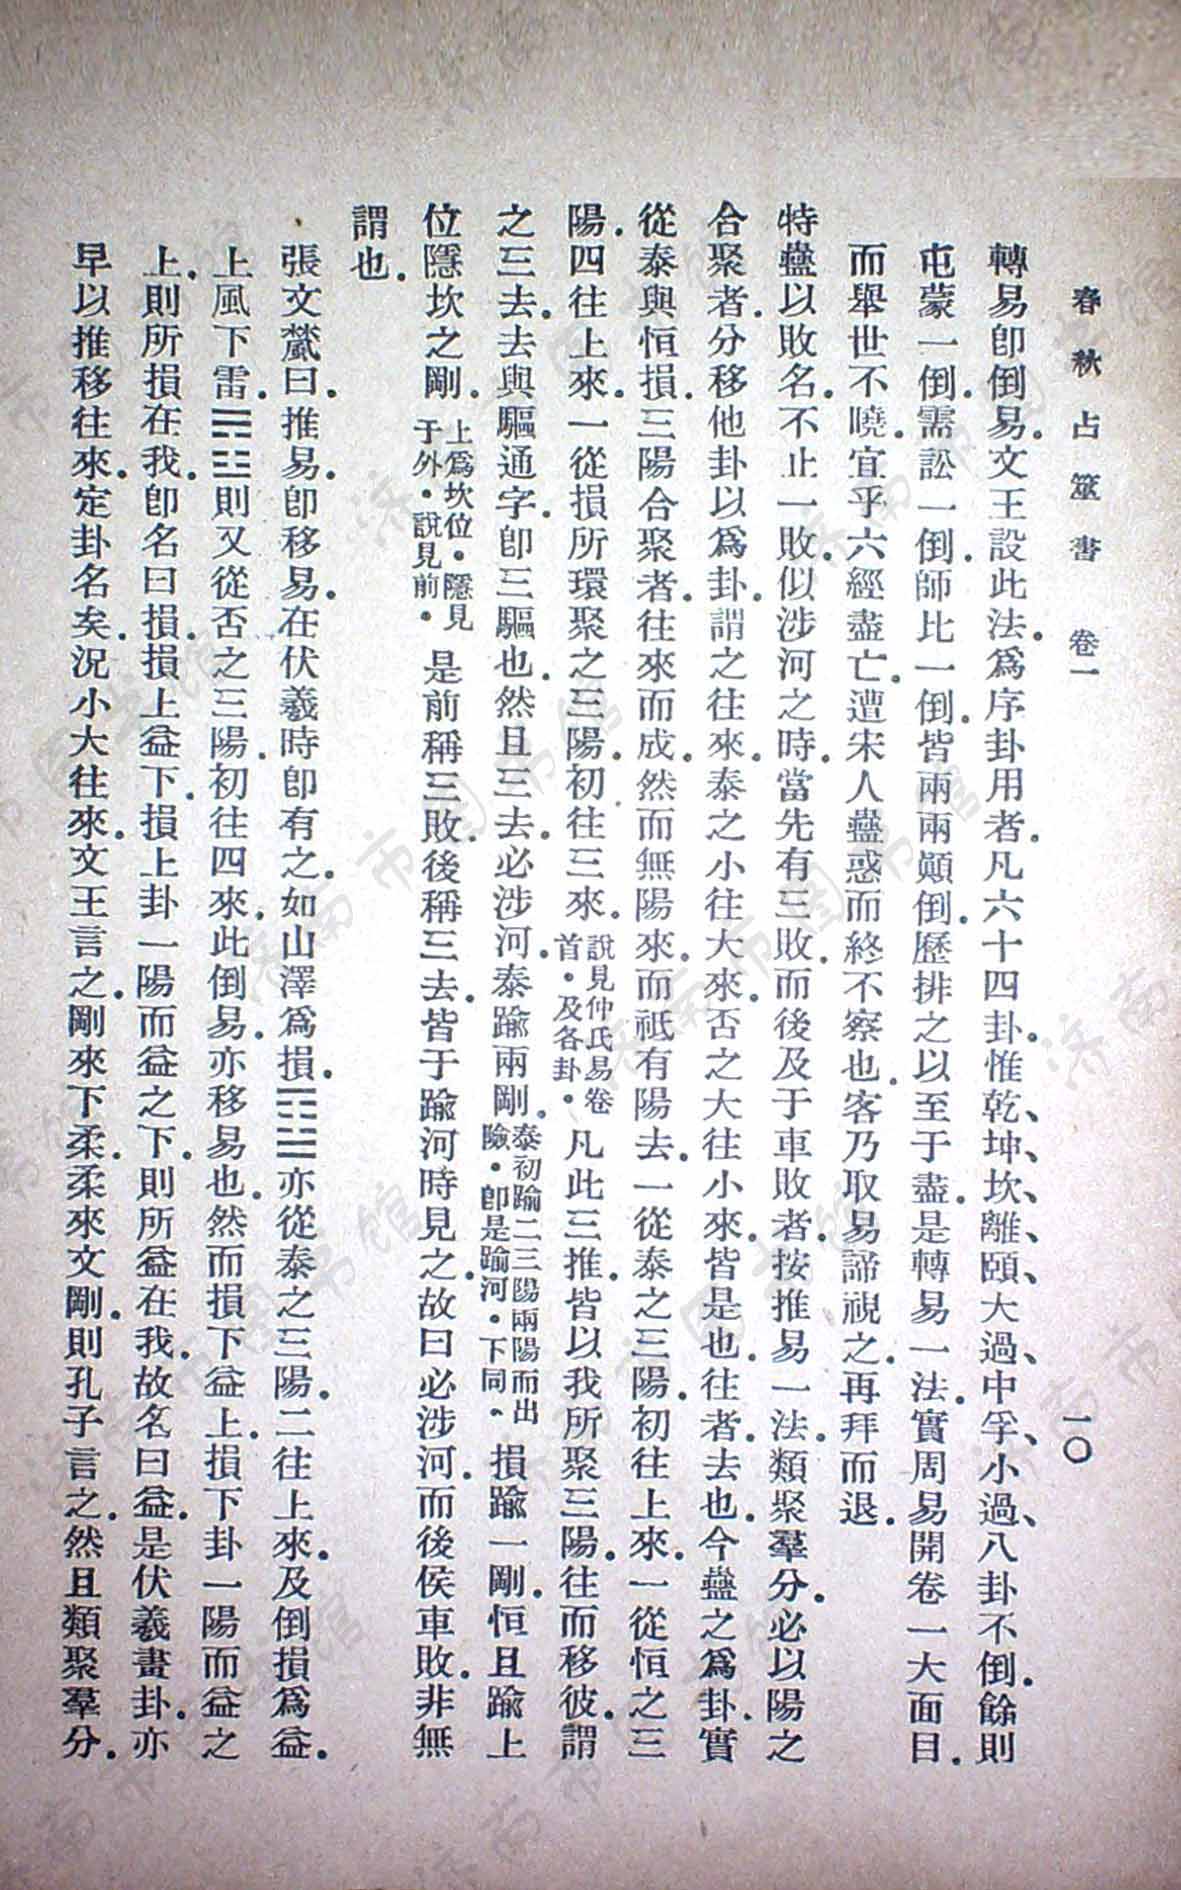 春秋占筮書　卷一　一〇
轉易卽倒易。文王設此法。爲序卦用者。凡六十四卦。惟乾、坤、坎、離、頤、大過、中孚、小過、八卦不倒。餘則
屯蒙一倒。需訟一倒。師比一倒。皆兩兩顚倒。歷排之以至于盡。是轉易一法。實周易開卷一大面目。
而舉世不曉。宜乎六經盡亡。遭宋人蠱惑而終不察也。客乃取易諦視之。再拜而退。
特蠱以敗名。不止一敗。似涉河之時。當先有三敗。而後及于車敗者。按推易一法。類聚羣分。必以陽之
合聚者。分移他卦以爲卦。謂之往來。泰之小往大來。否之大往小來。皆是也。往者。去也。今蠱之爲卦。實
從泰與恒損。三陽合聚者。往來而成。然而無陽來。而祇有陽去。一從泰之三陽。初往上來。一從恒之三
陽。四往上來。一從損所環聚之三陽。初往三來。說見仲氏易卷首。及各卦。凡此三推。皆以我所聚三陽。往而移彼。謂
之三去。去與驅通字。卽三驅也。然且三去。必涉河。泰踰兩剛。泰初踰二三陽兩陽而出險。卽是踰河。下同。損踰一剛。恒且踰上
位隱坎之剛。上爲坎位。隱見于外。說見前。是前稱三敗。後稱三去。皆于踰河時見之。故曰必涉河。而後侯車敗。非無
謂也。
張文虪曰。推易。卽移易。在伏羲時卽有之。如山澤爲損。䷨亦從泰之三陽。二往上來。及倒損爲益。
上風下雷。䷩則又從否之三陽。初往四來。此倒易。亦移易也。然而損下益上。損下卦一陽而益之
上。則所損在我。卽名曰損。損上益下。損上卦一陽而益之下。則所益在我。故名曰益。是伏羲畫卦。亦
早以推移往來。定卦名矣。況小大往來。文王言之。剛來下柔。柔來文剛。則孔子言之。然且類聚羣分。